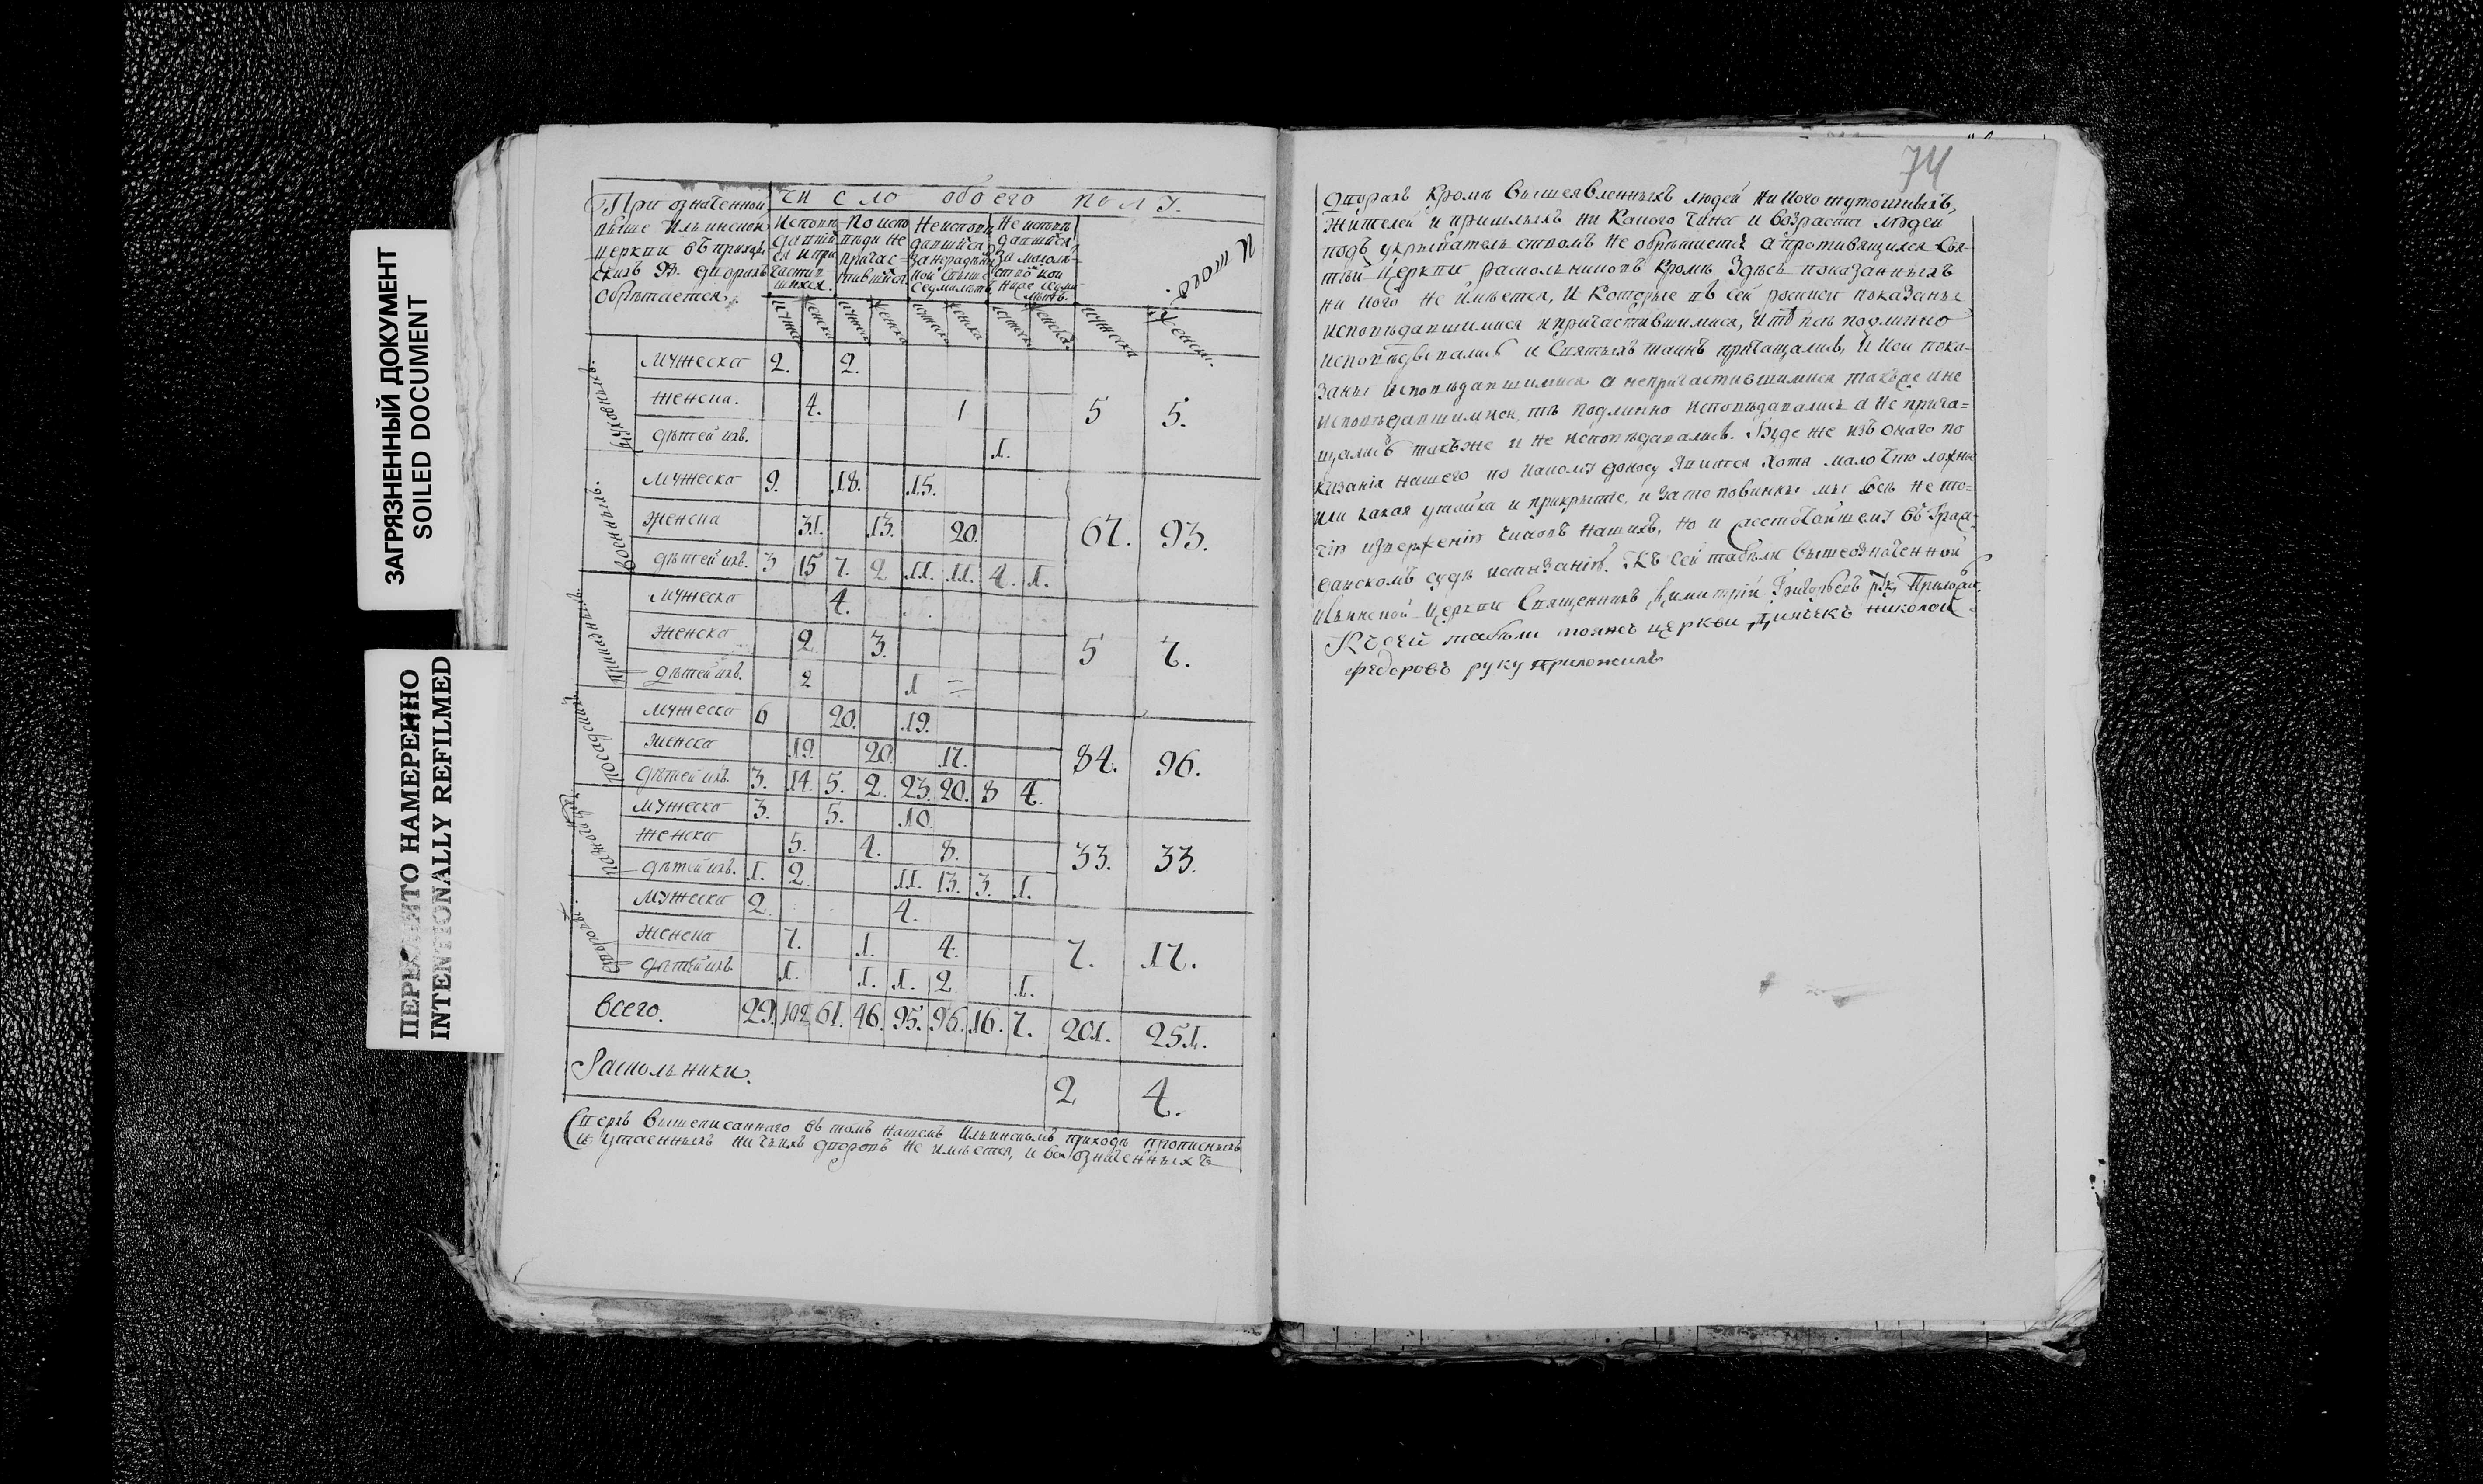 ЗАГРЯЗНЕННЫЙ ДОКУМЕНТ
SOILED DOCUMENT
ПЕРЕСНЯТО НАМЕРЕННО
INTENTIONALLY REFILMED
При означенной
выше Ильинской
церкви въ приход
скихъ 98. дворахъ
обрѣтается.
число обоего полу.
Исповѣ
давшiи
ся и при
частив
шихся.
По испо
вѣди не
причас
тившiися
Не исповѣ
давшiися
Не исповѣ
давшiися
за малолѣ
Итого.
Мужеска Женска Мужеска Женска Мужеска Женска Мужеска Женска Мужеска Женска.
Духовныхъ.
мужеска 2. 2.
женска. 4. 1 5 5.
дѣтей ихъ. 1.
Военныхъ.
мужеска 9. 18. 15.
женска 31. 13. 20. 67. 93.
дѣтей ихъ. 3 15 7. 2 11. 11. 4. 1.
Приказныхъ
мужеска 4.
женска 2 3. 5 7.
дѣтей ихъ. 2 1
Посадскихъ
мужеска 6 20. 19.
женска 19. 20. 17. 84. 96.
дѣтей ихъ. 3. 14. 5. 2. 23. 20. 8 4.
мужеска 3. 5. 10.
женска 5. 4. 8. 33. 33.
дѣтей ихъ. 1. 2. 11. 13. 3. 1.
мужеска 2. 4.
женска 7. 1. 4. 7. 17.
дѣтей ихъ. 1. 1. 1. 2 1.
Всего. 29. 102 61. 46. 95. 96. 16. 7. 201. 251.
Раскольники. 2 4.
Сверхъ вышеписанного въ томъ нашемъ Ильинскомъ приходѣ прописныхъ
и утаенныхъ ни чьихъ дворовъ не имѣется, и во означенныхъ
74
дворахъ кромѣ вышеявленныхъ людей ни кого тутошныхъ,
жителей и пришлыхъ ни какого чина и возраста людей
подъ укрывательствомъ не обрѣтается а противящихся свя-
тѣй церкви раскольниковъ кромѣ здѣсь показанныхъ
ни кого не имѣется, и которые въ сей росписи показаны
исповѣдавшимися и причастившимися, и тѣ всѣ подлинно
исповѣдывались и святыхъ таинъ причащались, и кои пока-
заны исповѣдавшимися а непричастившимися такъже и не
исповѣдавшимися, тѣ подлинно исповѣдавались а не прича=
щались такъже и не исповѣдавались. Буде же изъ онаго по
казанiя нашего по какому доносу явится хотя мало что ложно
или какая утайка и прикрытiе, и за то повинны мы всѣ не то=
чiю изверженiю чиновъ нашихъ, но и жесточайшему въ граж-
данскомъ судѣ истязанiю. Къ сей табели вышеозначенной
Ильинской церкви священникъ Димитрiй Григорьевъ рук. Приложи.
Къ сей табели тояжъ церкви дьячекъ николай
федоровъ руку приложилъ